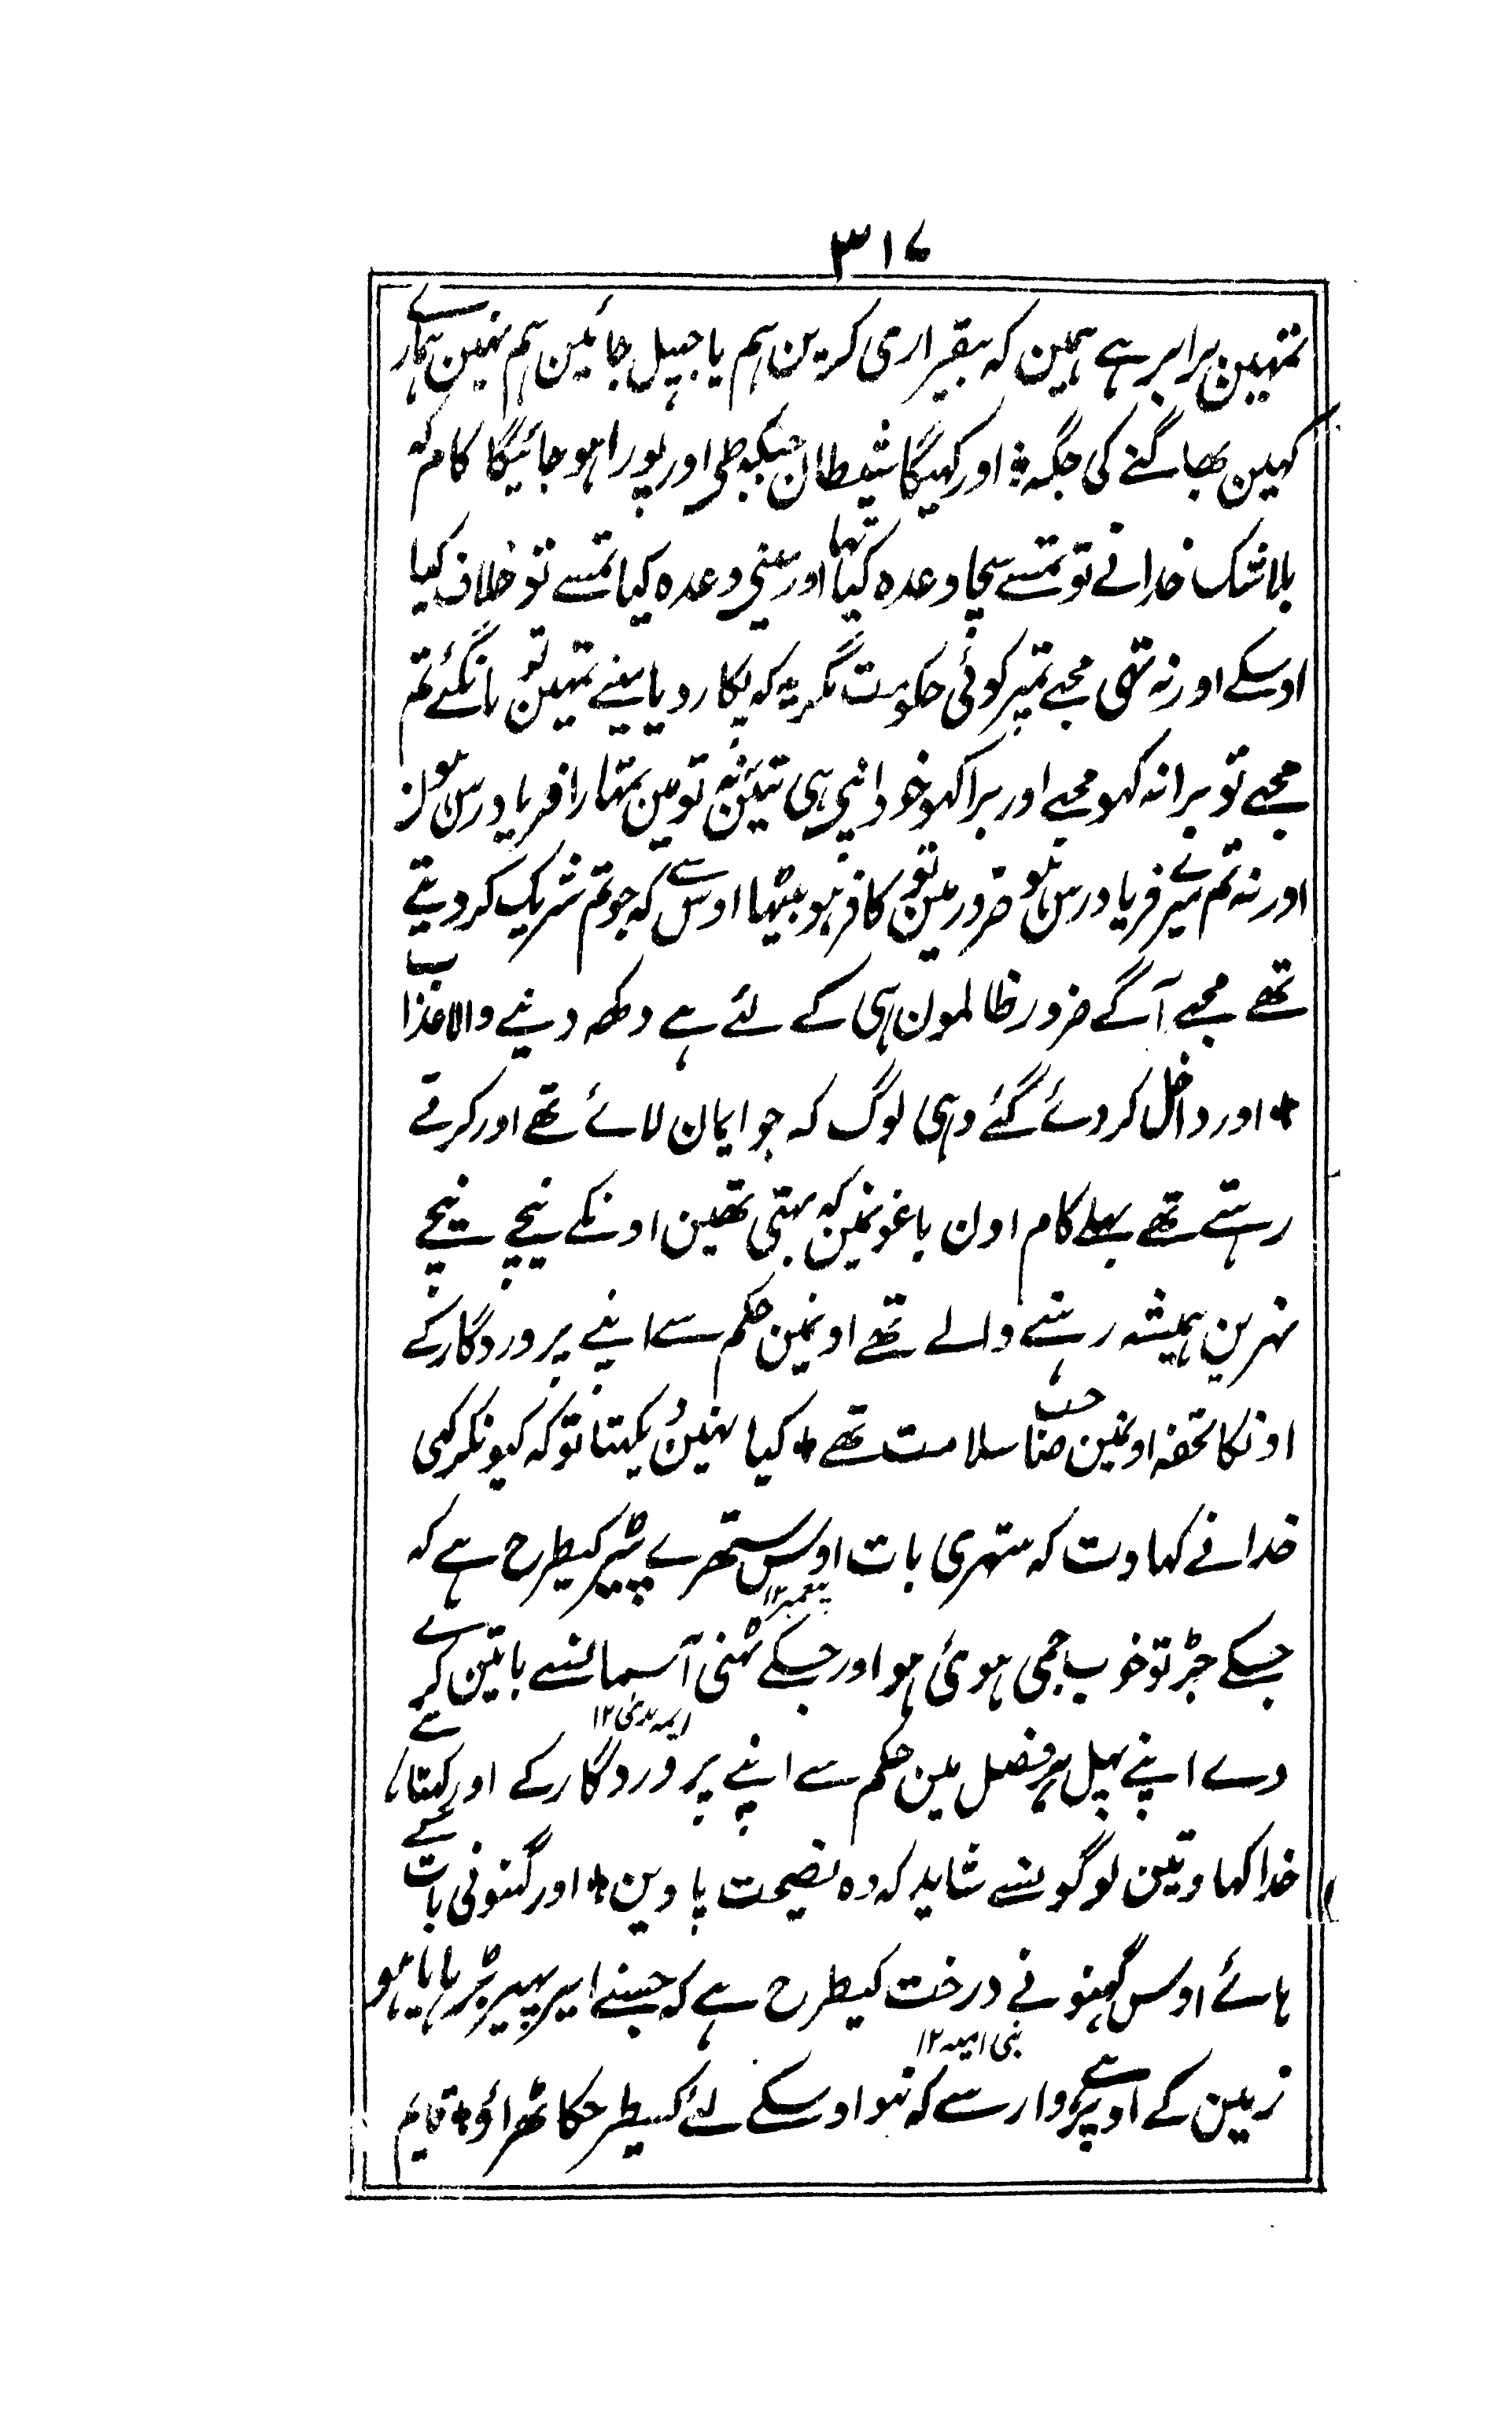 ۳۱۷
تمہین برابر ہے ہمین کہ بیقراری کرین ہم یا جھیل جائین ہم نہین ہمارے
کہین بھاگنے کی جگہ ٭ اور کہیگا شیطان جبکہ طی اور پورا ہو جائیگا کام کہ
بلا شک خدا نے تو تمسے سچا وعدہ کیا تہا اور مینی وعدہ کیا تمسے تو خلاف کیا
اوسکے اور نہ تھی مجہے تمپر کوئی حکومت مگر یہ کہ پکار دیا مینے تمہین تو مانگئے تم
مجہے تو برا نہ کہو مجہے اور برا کہو خود اپنی ہی تئین نہ تو مین تمہارا فریاد رس ہون
اور نہ تم میرے فریاد رس ہو ضرور مین تو کافر ہو بیٹہا اوس سے کہ جو تم شریک کر دیتے
تھے مجہے آگے ضرور ظالمون ہی کے لئے ہے دکھ دینے والا عذاب
٭ اور داخل کر دئے گئے وہی لوگ کہ جو ایمان لائے تھے اور کرتے
رہتے تھے بہلے کام اون باغونمین کہ بہتی تھین اونکے نیچے نیچے
نہرین ہمیشہ رہنے والے تھے اونمین حکم سے اپنے پروردگار کے
اونکا تحفہ اونمین صاحب سلامت تھے ٭ کیا نہین دیکہتا تو کہ کیونکر کہی
خدا نے کہاوت کہ ستہری بات اوس ستھرے پیڑ کیطرح ہے کہ
پیغمبر ۱۲
جسکے جڑ تو خوب جمی ہوئ ہو اور جسکے ٹہنی آسمانسے باتین کرے
ایمہ ہدی ۱۲
دے اپنے پہل ہر فصل مین حکم سے اپنے پروردگار کے اور کہتا ہے
خدا کہاوتین لوگونسے شاید کہ وہ نصیحت پاوین ٭ اور گہنونی بات
ہائے اوس گہنونے درخت کیطرح ہے کہ جسنے ایر پہیر بڑہایا ہو
بنی امیہ ۱۲
زمین کے اوپر ہی پروار سے کہ نہو اوسکے لئے کسیطرحکا ٹھراؤ ٭ قایم